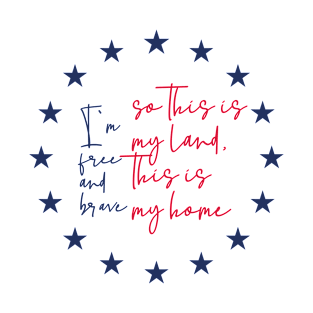 I'm
free
and
brave
so this is
my land,
this is
my home